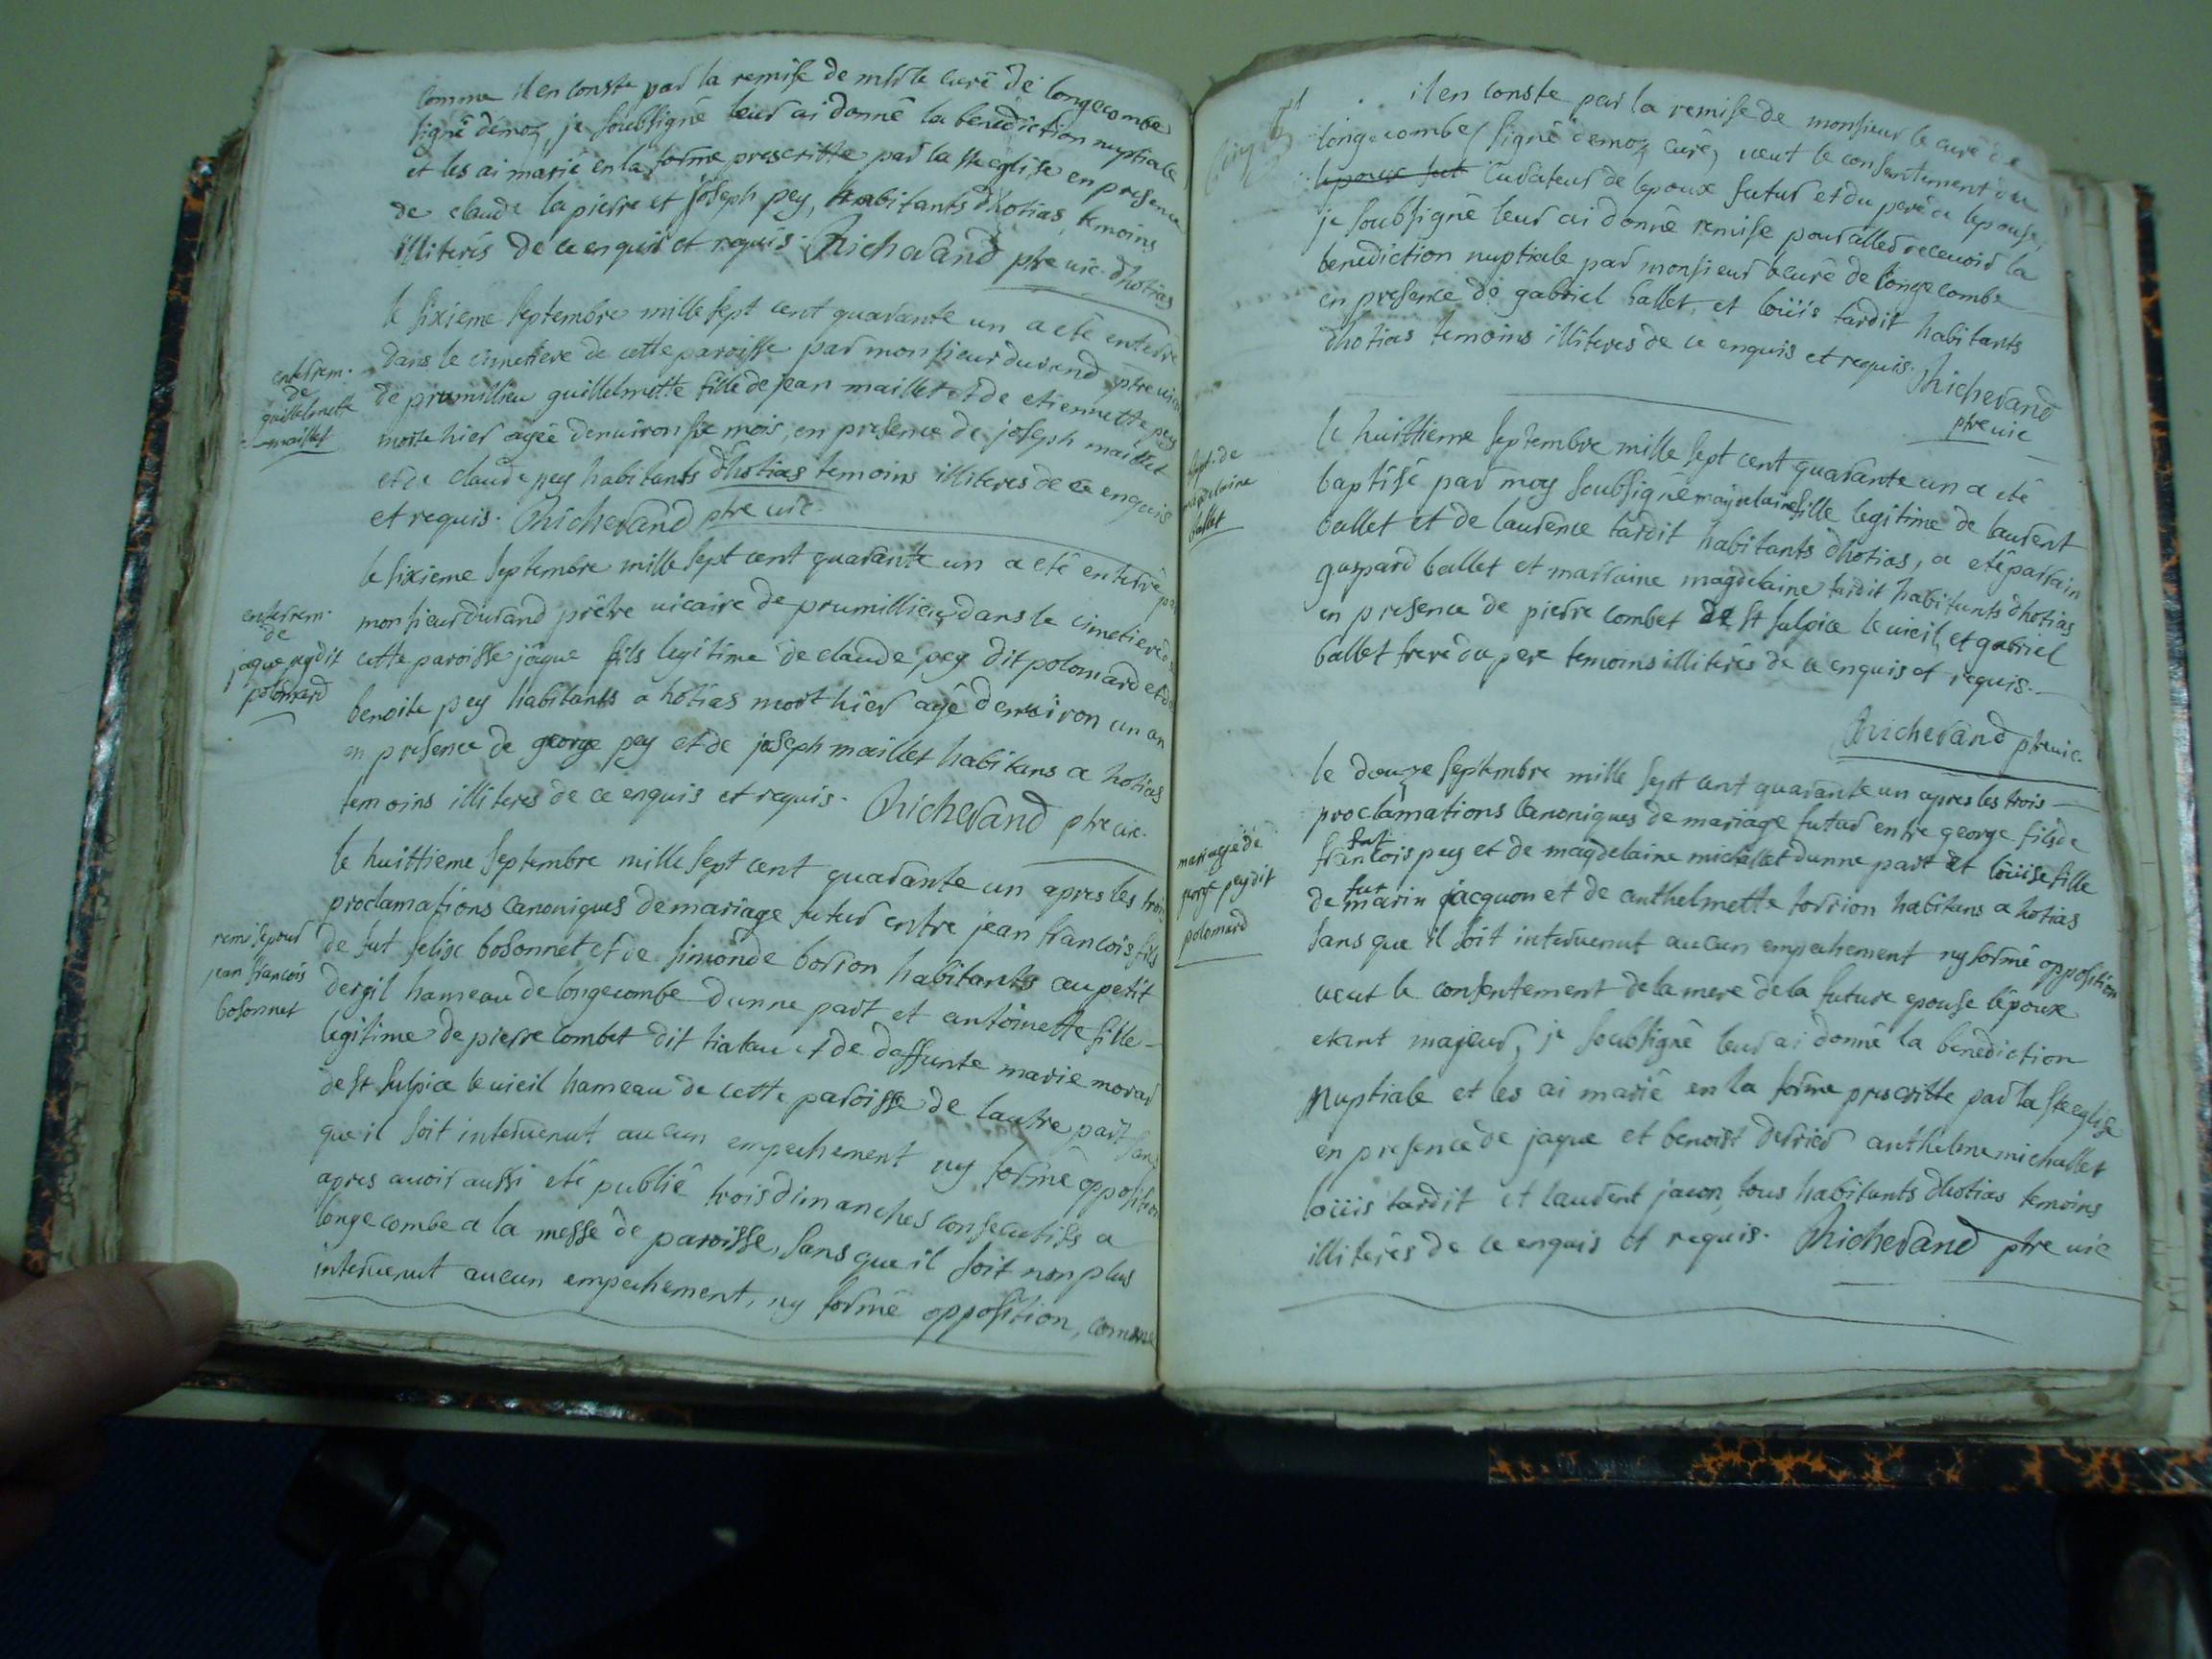 comme il en conste par la remise de msr le curé de longecombe
signé demoz, je soubsigné leur ai donné la benediction nuptiale
et les ai marié en la forme prescritte par la ste eglise en presence
de claude la pierre et joseph pey, habitants dhotias, temoins
illiterés de ce enquis et requis. Richerand ptre vic. dhotias
le sixieme septembre mille sept cent quarante un a eté enterré
enterrem.
de
guillelmette
maillet
dans le cimetiere de cette paroisse par monsieur durand ptre vic
de prumillieu guillelmette fille de jean maillet et de etiennette pey
morte hier agée denviron six mois, en presence de joseph maillet
et de claude pey habitants dhotias temoins illiteres de ce enquis
et requis. Richerand ptre vic.
le sixieme septembre mille sept cent quarante un a eté enterré par
enterrem.
de
jaque pey dit
polomard
monsieur durand prêtre vicaire de prumillieu, dans le cimetiere de
cette paroisse jaque fils legitime de claude pey dit polomard et de
benoite pey habitants a hotias mort hier agé denviron un an
en presence de george pey et de joseph maillet habitans a hotias
temoins illiteres de ce enquis et requis. Richerand ptre vic.
le huittieme septembre mille sept cent quarante un apres les trois
remise pour
jean françois
bosonnet
proclamations canoniques de mariage futur entre jean francois fils
de fut felise bosonnet et de simonde borron habitants au petit
dergil hameau de longecombe dunne part et antoinette fille
legitime de pierre combet dit tiatau et de deffunte marie morar
de st sulpice le vieil hameau de cette paroisse de lautre part sans
que il soit intervenut aucun empechement ny formé opposition
apres avoir aussi eté publié trois dimanches consecutifs a
longecombe a la messe de paroisse, sans que il soit non plus
intervenut aucun empechement, ny formé opposition, comme
il en conste par la remise de monsieur le curé de
longecombe (signé demoz curé) veut le consentement du
lepoux fut curateur de lepoux futur et du pere de lepouse,
je soubsigné leur ai donné remise pour aller recevoir la
benediction nuptiale par monsieur le curé de longecombe
en presence de gabriel ballet, et loüis tardit habitants
dhotias temoins illiteres de ce enquis et requis. Richerand
ptre vic
bapt. de
magdelaine
ballet
le huittieme septembre mille sept cent quarante un a eté
baptisé par moy soubsigné magdelaine fille legitime de laurent
ballet et de laurence tardit habitants dhotias, a eté parrain
gaspard ballet et marraine magdelaine tardit habitants dhotias
en presence de pierre combet de st sulpice le vieil, et gabriel
ballet frere du pere temoins illiterés de ce enquis et requis.
Richerand ptre vic.
le douze septembre mille sept cent quarante un apres les trois
mariage de
george pey dit
polomard
proclamations canoniques de mariage futur entre george fils de
fut
francois pey et de magdelaine michallet dunne part et loüise fille
fut
de marin jacquon et de anthelmette torrion habitans a hotias
sans que il soit intervenut aucun empechement ny formé opposition
veut le consentement de la mere de la future epouse lépoux
etant majeur, je soubsigné leur ai donné la benediction
nuptiale et les ai marié en la forme prescritte par la ste eglise
en presence de jaque et benoist derrier anthelme michallet
loüis tardit et laurent jacon, tous habitants dhotias temoins
illiterés de ce enquis et requis. Richerand ptre vic